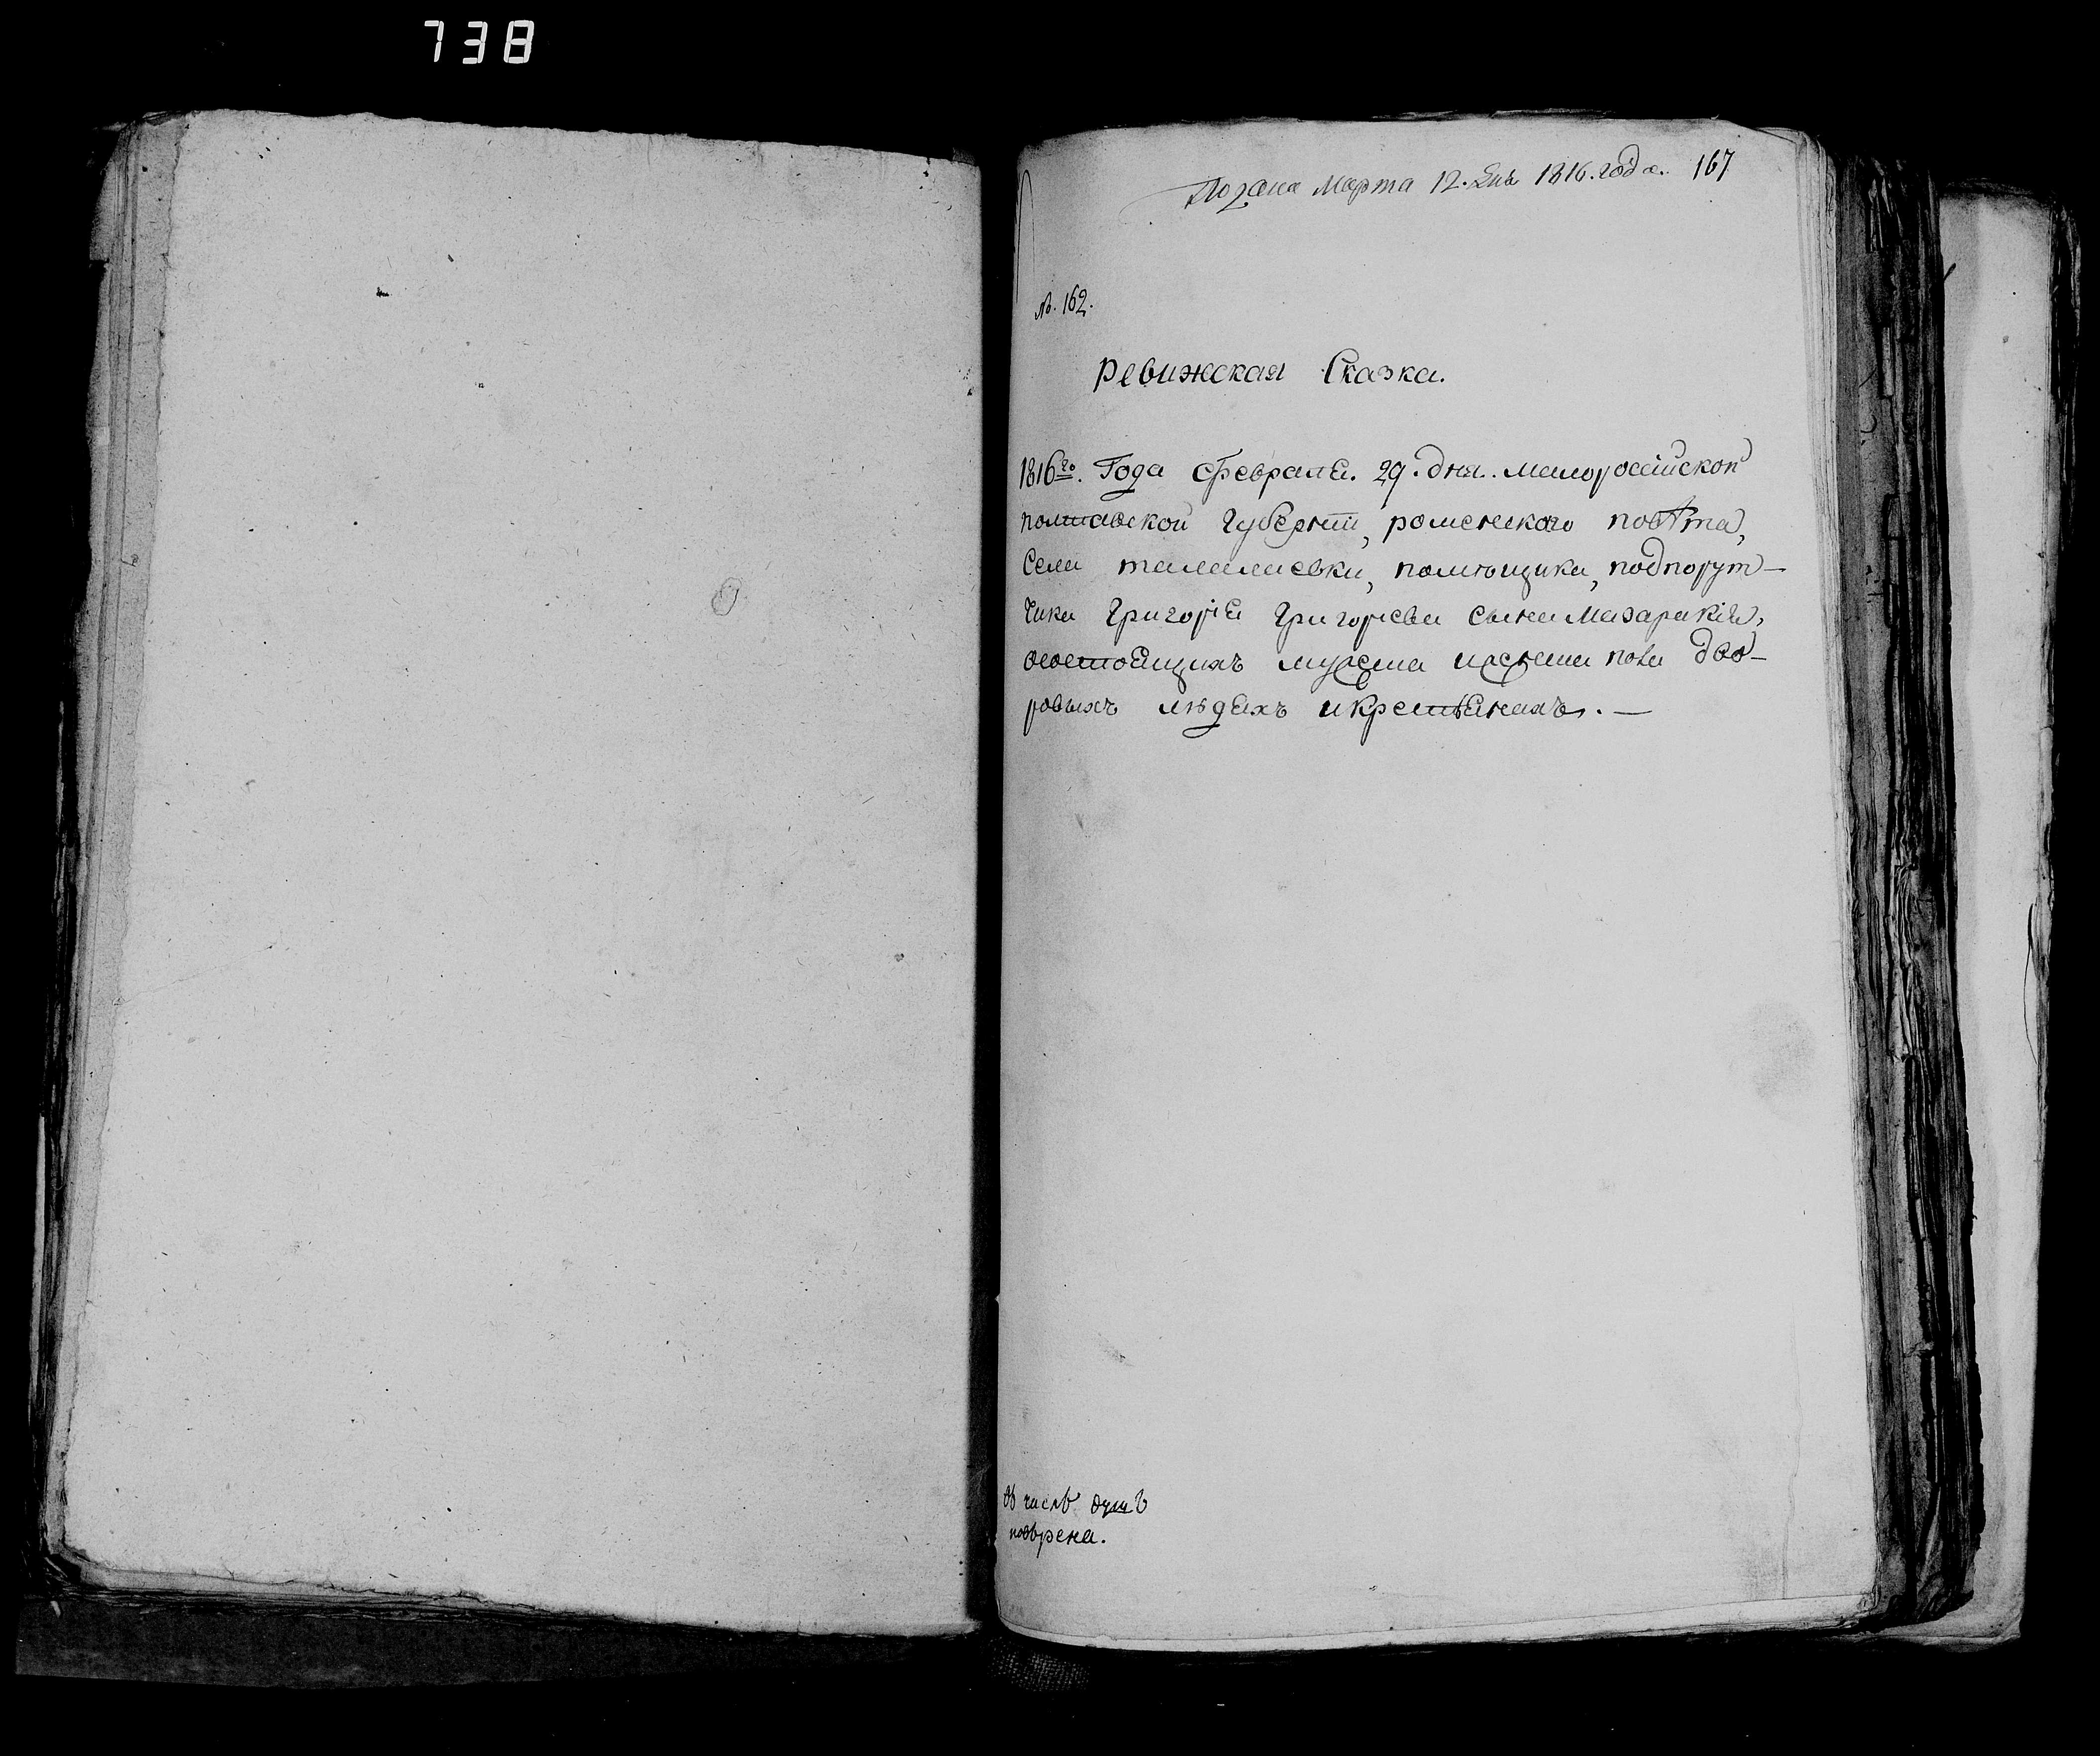 738
Подана Марта 12. дня 1816. года. 167
№. 162.
Ревижская Сказка.
1816го. Года Февраля. 29. дня. малоросійской
полтавской губерніи, роменского повѣта,
Села талалаевки, помѣщика, подпорут-
чика Григорія Григорьева сына Мазаракія,
осостоящихъ мужеска иженска пола дво-
ровыхъ людяхъ икрестьянахъ. —
въ числѣ душъ
повѣрена.